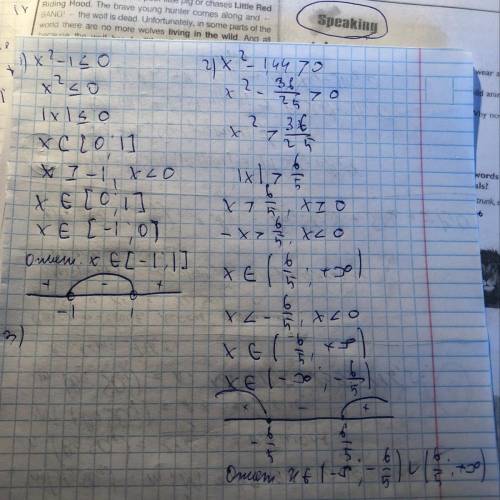 Riding Hood. The brave young hunter comes along and –
BANG! – the wolf is dead. Unfortunately, in some parts of the
world there are no more wolves living in the wild. And all
Speaking
words
1) x² - 1 ≤ 0
x² ≤ 0
|x| ≤ 0
x ∈ [0, 1]
x ≥ -1, x < 0
x ∈ [0, 1]
x ∈ [-1, 0]
Ответ: x ∈ [-1, 1]
+ - +
-1 1
3)
2) x² - 144 > 0
x² - 36/25 > 0
x² > 36/25
|x| > 6/5
x > 6/5, x ≥ 0
-x > 6/5, x < 0
x ∋ (6/5; +∞)
x < -6/5, x < 0
x ∋ (6/5; +∞)
x ∋ (-∞; -6/5)
+ - +
-6/5 6/5
Ответ: x ∈ (-∞; -6/5) ∪ (6/5; +∞)